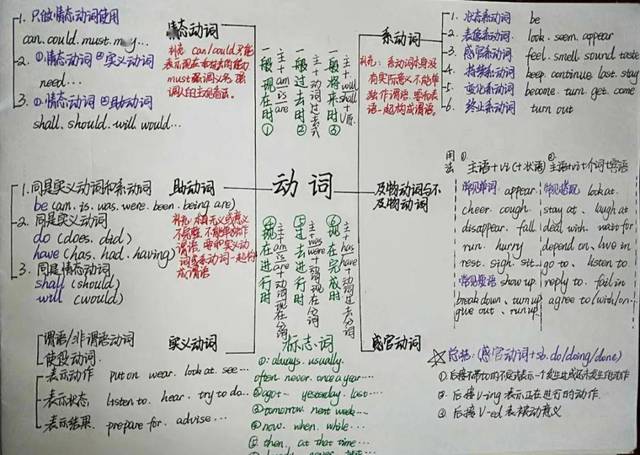 1. 只做情态动词使用
can. could. must. may...
2. ①情态动词 ②实义动词
need...
3. ①情态动词 ②助动词
shall. should. will. would...
情态动词
补充: can/could 只能
表示现在或过去的能力
must强调义务, 强
调人的主观看法
一般现在时①
主+am is are
一般过去时②
主+动词过去式
一般将来时③
主+will shall+V原
系动词
补充: 系动词本身没
有实际意义不能单
独作谓语, 要和表
语一起构成谓语。
1. 状态系动词 be
2. 表象系动词 look. seem. appear
3. 感官系动词 feel. smell. sound. taste
4. 持续系动词 keep. continue. last. stay
5. 变化系动词 become. turn. get. come
6. 终止系动词 turn out
动词
1. 同是实义动词和系动词
be (am. is. was. were. been. being. are)
2. 同是实义动词
do (does. did)
have (has. had. having)
3. 同是情态动词
shall (should)
will (would)
助动词
补充: 本身无义或意义
不完整, 不能单独作
谓语, 要和实义动
词或系动词一起构
成谓语
④现在进行时
主+am is are+动词现在分词
⑤过去进行时
主+was were+动词现在分词
⑥现在完成时
主+has have+动词过去分词
及物动词与不
及物动词
用法
① 主语+vi (+状语)
常见单词: appear
cheer. cough.
disappear. fall
run. hurry
rest. sigh. sit...
常见短语: show up
break down. turn up
give out. run up
② 主语+vi+介词+宾语
常见搭配: look at.
stay at. laugh at
deal with. wait for
depend on. live in
go to. listen to
reply to. fail in
agree to/with/on
实义动词
谓语/非谓语动词
使役动词
表示动作 put on. wear. look at. see...
表示状态. listen to. hear. try to do...
表示结果. prepare for. advise...
标志词
①: always. usually.
often. never. once a year...
② ago. yesterday. last...
③ tomorrow. next week...
④ now. when. while...
⑤ then. at that time...
感官动词
☆总结: (感官动词+sb. do/doing/done)
② 后接 V-ing 表示正在进行的动作.
③ 后接 V-ed 表被动意义